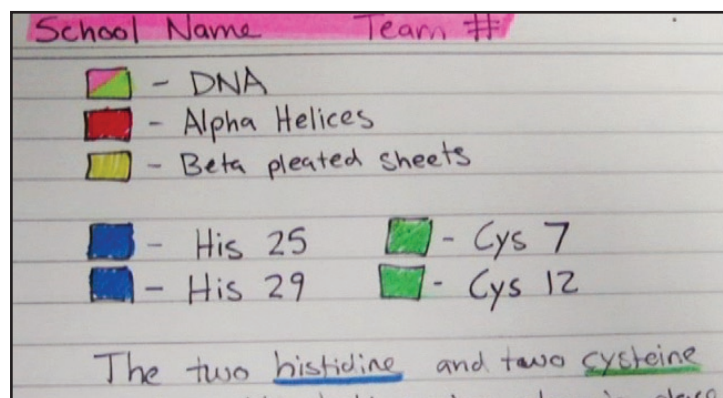 School Name Team #
- DNA
- Alpha Helices
- Beta pleated sheets
- His 25 - Cys 7
- His 29 - Cys 12
The two histidine and two cysteine